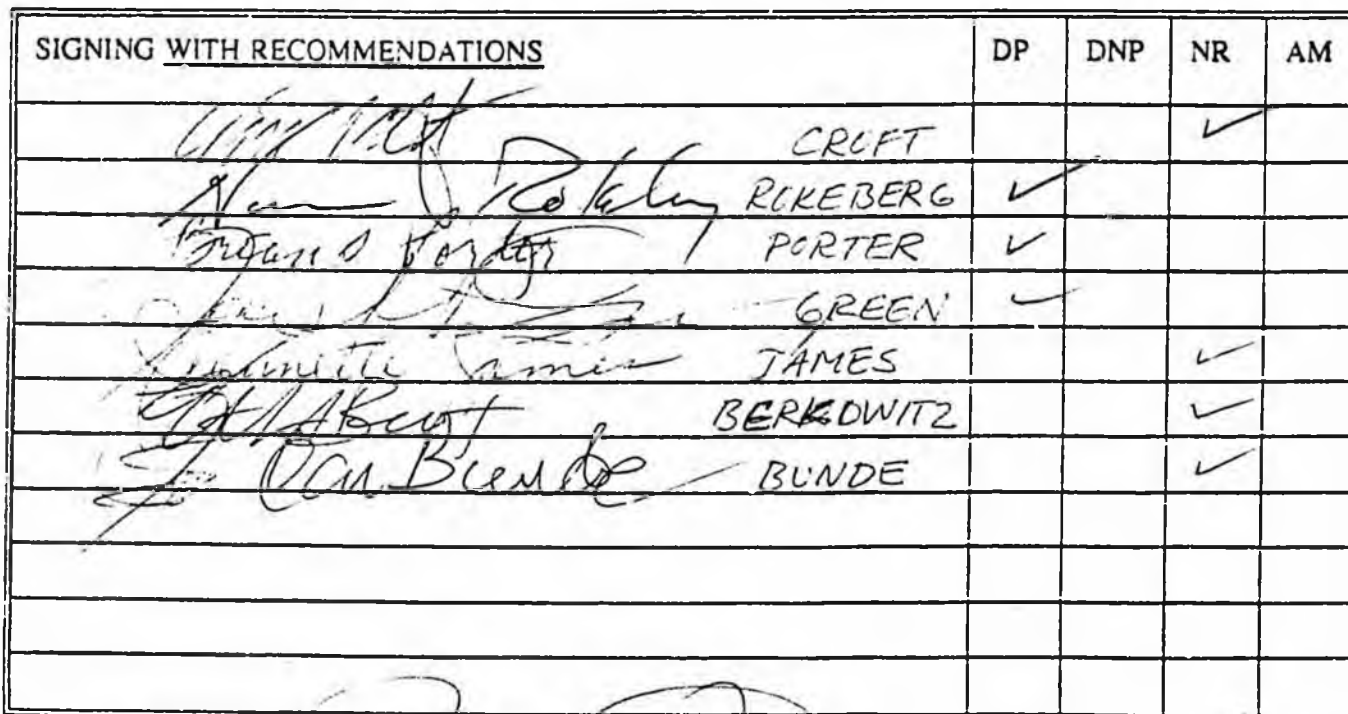 SIGNING WITH RECOMMENDATIONS DP DNP NR AM
CROFT ✓
ROKEBERG ✓
PORTER ✓
GREEN ✓
Jeannette James JAMES ✓
BERKOWITZ ✓
Con Bunde BUNDE ✓